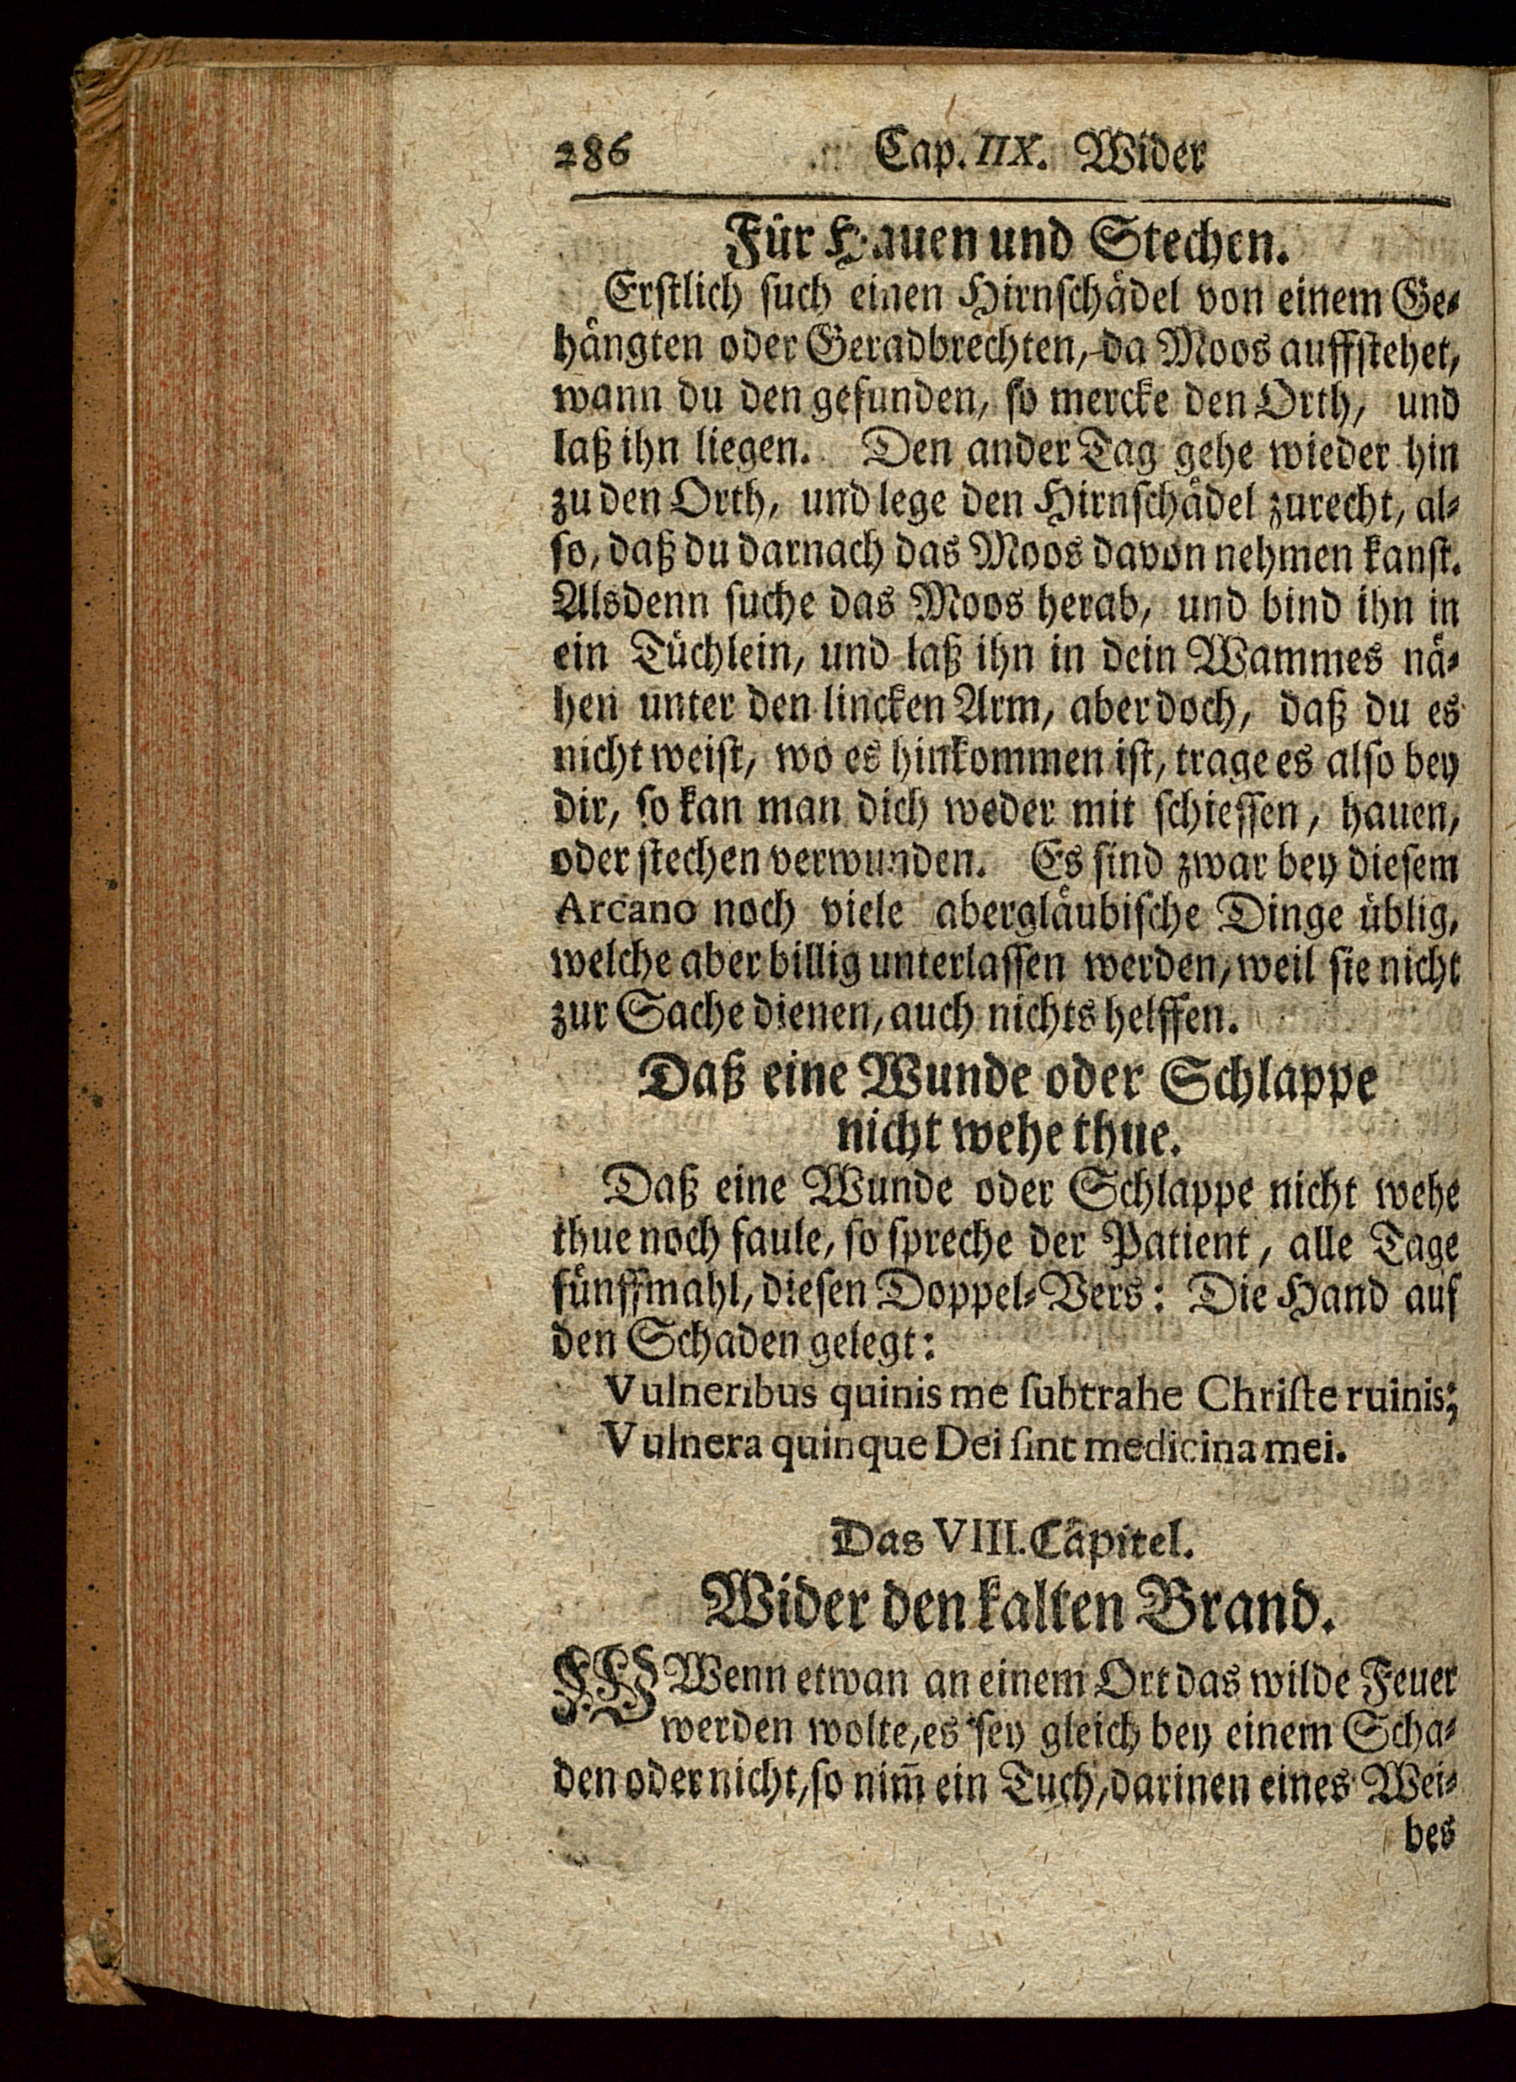 286 Cap. IIX. Wider
Für Hauen und Stechen.
Erstlich such einen Hirnschädel von einem Ge-
hängten oder Geradbrechten, da Moos auffstehet,
wann du den gefunden, so mercke den Orth, und
laß ihn liegen. Den ander Tag gehe wieder hin
zu den Orth, und lege den Hirnschädel zurecht, al-
so, daß du darnach das Moos davon nehmen kanst.
Alsdenn suche das Moos herab, und bind ihn in
ein Tüchlein, und laß ihn in dein Wammes nä-
hen unter den lincken Arm, aber doch, daß du es
nicht weist, wo es hinkommen ist, trage es also bey
dir, so kan man dich weder mit schiessen, hauen,
oder stechen verwunden. Es sind zwar bey diesem
Arcano noch viele abergläubische Dinge üblig,
welche aber billig unterlassen werden, weil sie nicht
zur Sache dienen, auch nichts helffen.
Daß eine Wunde oder Schlappe
nicht wehe thue.
Daß eine Wunde oder Schlappe nicht wehe
thue noch faule, so spreche der Patient, alle Tage
fünffmahl, diesen Doppel-Vers: Die Hand auf
den Schaden gelegt:
Vulneribus quinis me ſubtrahe Chriſte ruinis;
Vulnera quinque Dei ſint medicina mei.
Das VIII. Capitel.
Wider den kalten Brand.
Wenn etwan an einem Ort das wilde Feuer
werden wolte, es sey gleich bey einem Scha-
den oder nicht, so nim̅ ein Tuch, darinen eines Wei-
bes